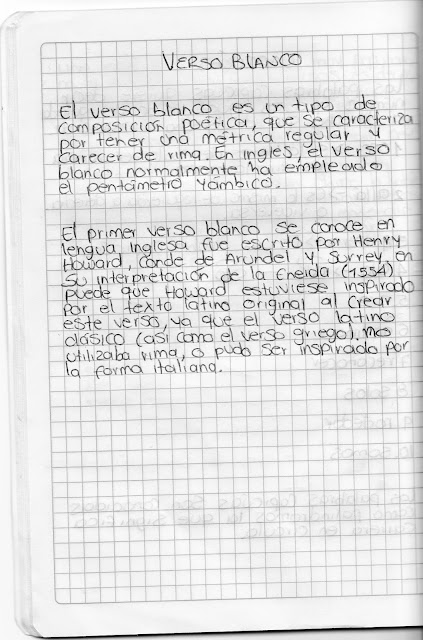 VERSO BLANCO
El verso blanco es un tipo de
composición poética, que se caracteriza
por tener una métrica regular y
carecer de rima. En ingles, el verso
blanco normalmente ha empleado
el pentámetro yámbico.
El primer verso blanco se conoce en
lengua inglesa fue escrito por Henry
Howard, conde de Arundel y Surrey, en
su interpretación de la Eneida (1554)
puede que Howard estuviese inspirado
por el texto latino original al crear
este verso, ya que el verso latino
clásico (así como el verso griego). no
utilizaba rima, o pudo ser inspirado por
la forma italiana.